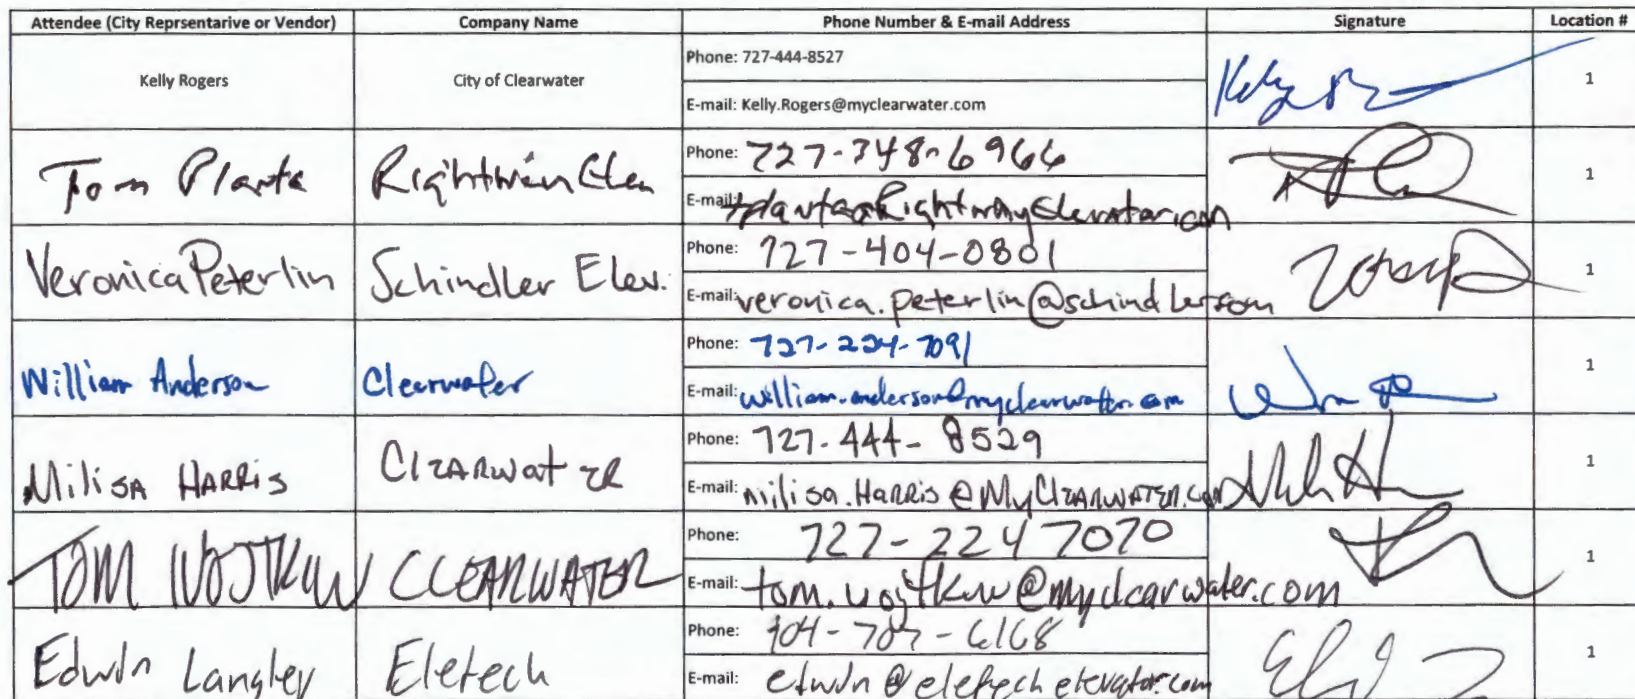 Attendee (City Reprsentarive or Vendor) Company Name Phone Number & E-mail Address Signature Location #
Kelly Rogers City of Clearwater Phone: 727-444-8527 1
E-mail: Kelly.Rogers@myclearwater.com
Tom Planta Phone: 727-348-6966 1
E-mail:
Veronica Peterlin Schindler Elev. Phone: 727-404-0801 1
E-mail: veronica.peterlin@schindler.com
William Anderson Clearwater Phone: 727-224-7091 1
E-mail: william.anderson@myclearwater.com
Milisa HARRis ClEARwatER Phone: 727-444-8529 1
E-mail: milisa.HARRis@MyClEARWATER.com
TOM CLEARWATER Phone: 727-224 7070 1
E-mail:
Edwin Langley Eletech Phone: 904-707-6168 1
E-mail: edwin@eletechelevator.com